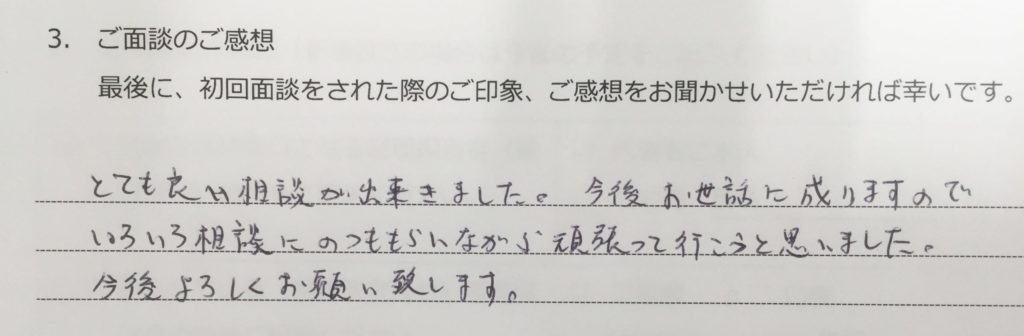 3. ご面談のご感想
最後に、初回面談をされた際のご印象、ご感想をお聞かせいただければ幸いです。
とても良い相談が出来きました。 今後お世話に成りますので
いろいろ相談にのつてもらいながら頑張って行こうと思いました。
今後よろしくお願い致します。